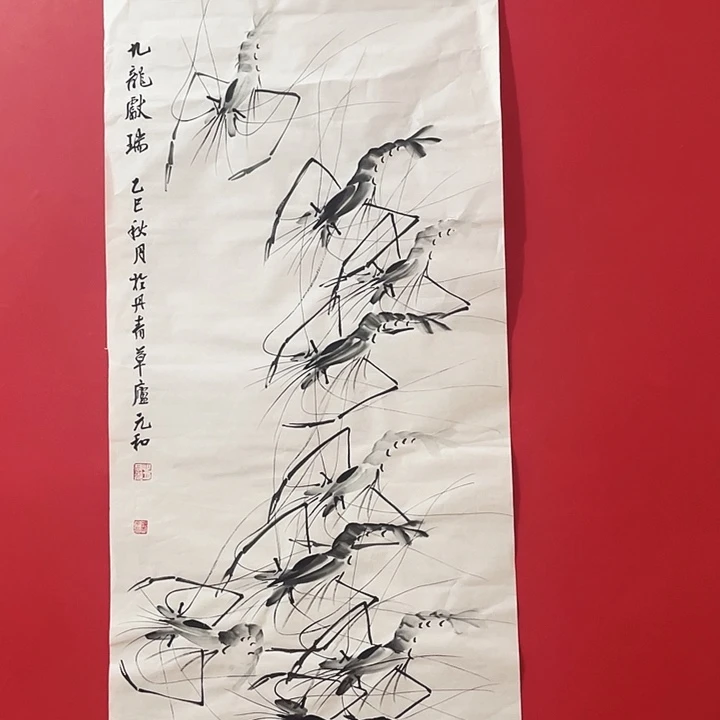 九龍獻瑞 乙巳秋月於丹青草廬元和